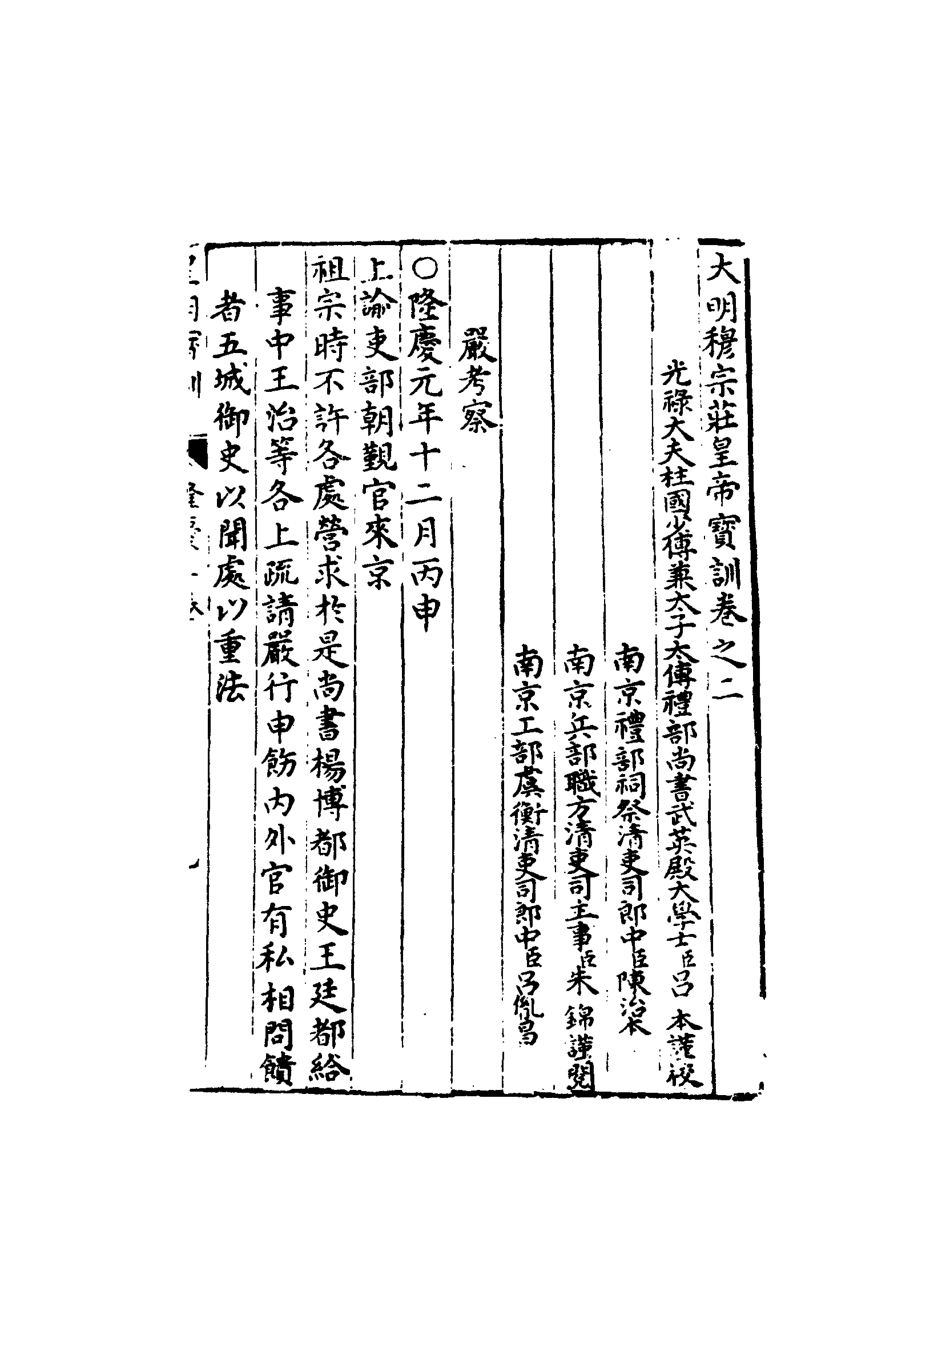 大明穆宗莊皇帝寶訓卷之二
光祿大夫柱國少傅兼太子太傅禮部尚書武英殿大學士臣呂 本謹校
南京禮部祠祭清吏司郎中臣陳治本
南京兵部職方清吏司主事臣朱 錦謹閱
南京工部虞衡清吏司郎中臣呂胤昌
嚴考察
○隆慶元年十二月丙申
上諭吏部朝覲官來京
祖宗時不許各處營求於是尚書楊博都御史王廷都給
事中王治等各上疏請嚴行申飭內外官有私相問饋
者五城御史以聞處以重法